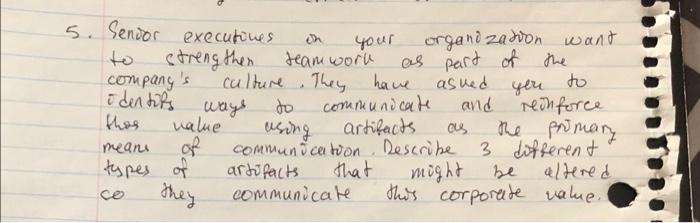 5. Senior executives in your organization want
to strengthen teamwork as part of the
company's culture. They have asked you to
identify ways to communicate and reinforce
this value using artifacts as the primary
means of communication. Describe 3 different
types of artifacts that might be altered
so they communicate this corporate value.